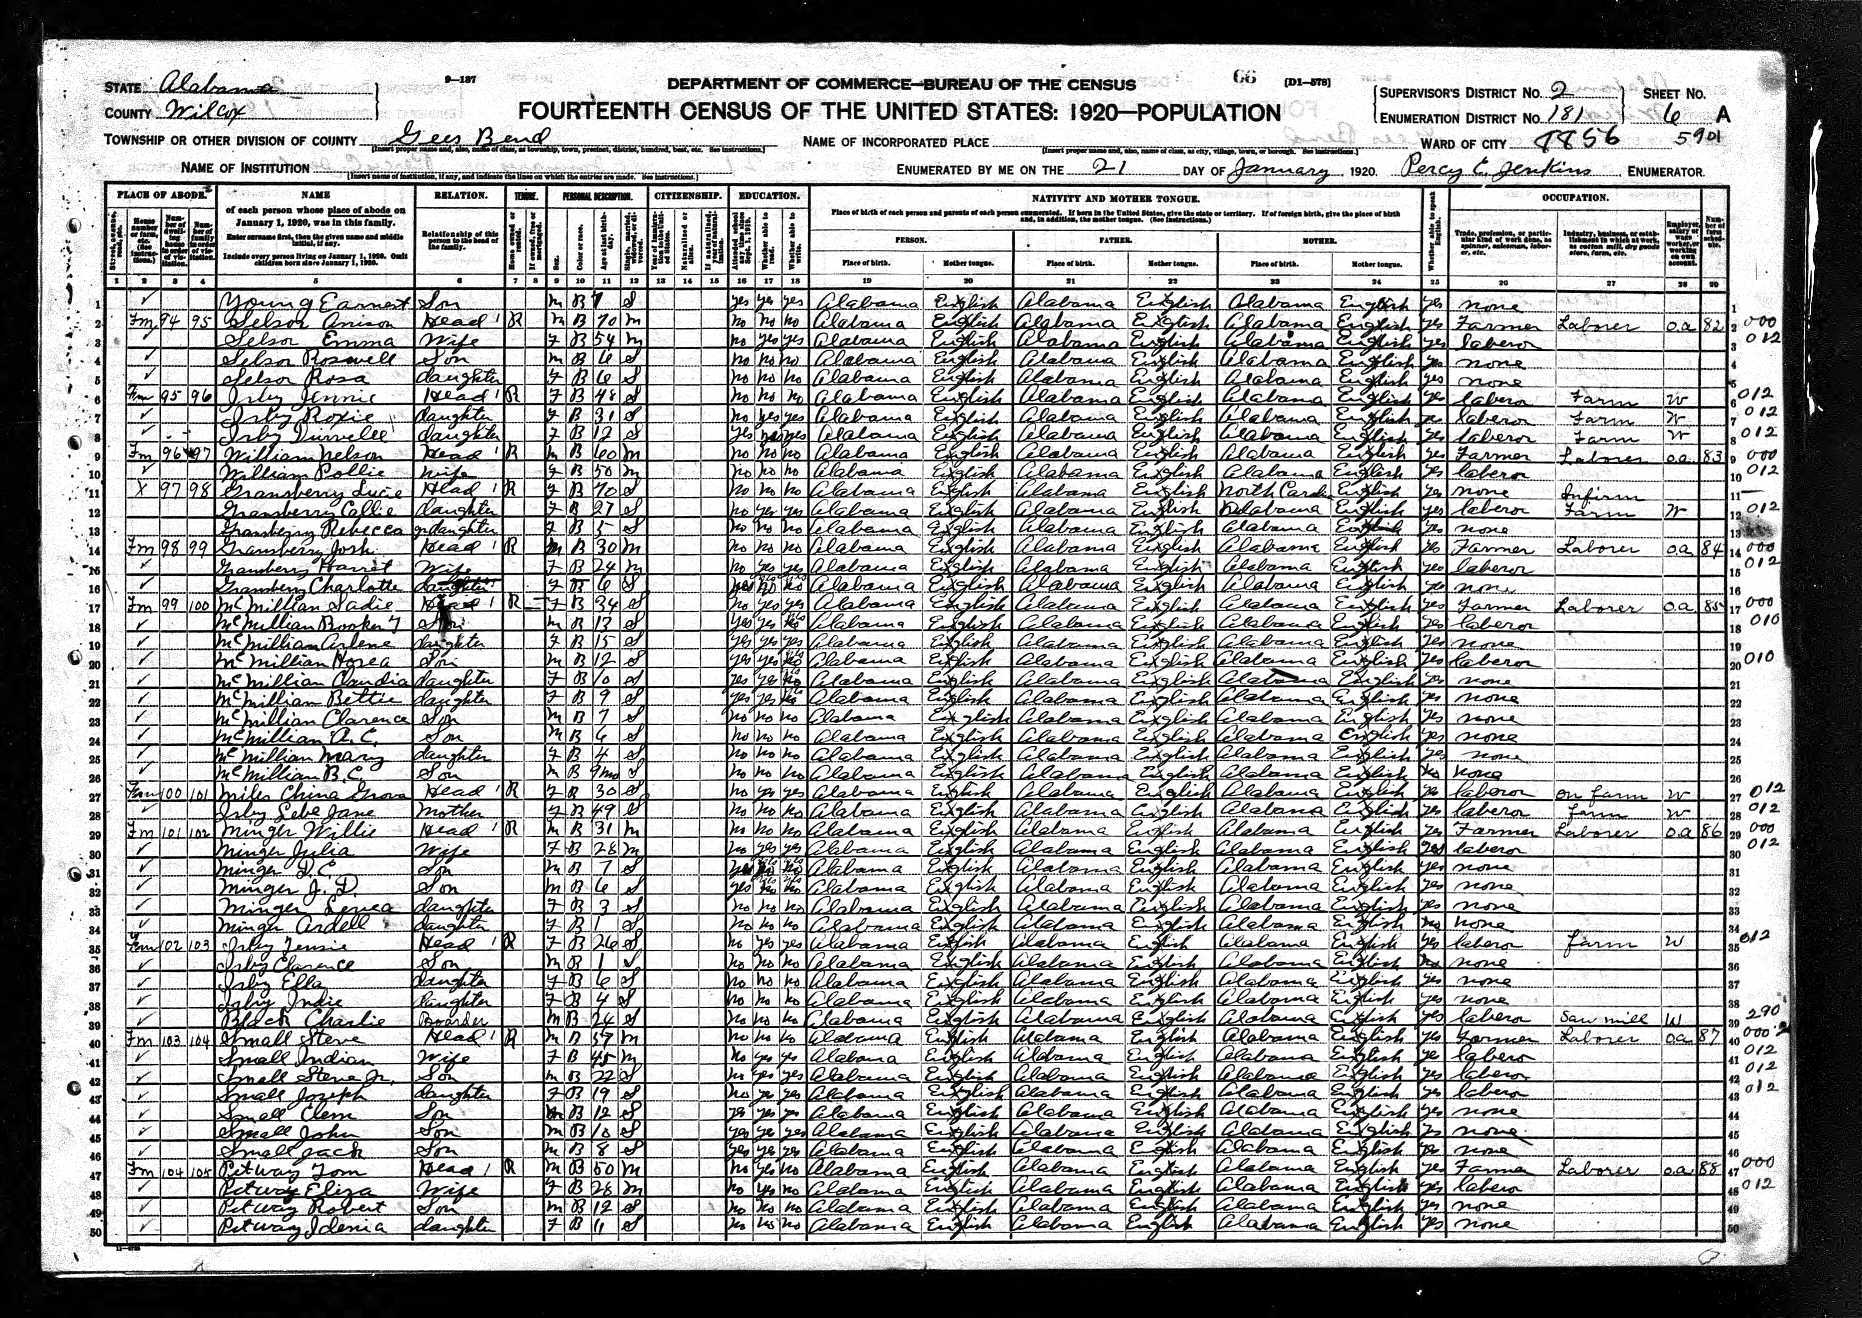 STATE Alabama
COUNTY Wilcox
9—137
DEPARTMENT OF COMMERCE—BUREAU OF THE CENSUS
66
[D1—578]
FOURTEENTH CENSUS OF THE UNITED STATES: 1920—POPULATION
SUPERVISOR'S DISTRICT NO. 2
ENUMERATION DISTRICT NO. 181
SHEET NO. 6 A
TOWNSHIP OR OTHER DIVISION OF COUNTY Gees Bend
NAME OF INCORPORATED PLACE
WARD OF CITY 7856 5901
NAME OF INSTITUTION
ENUMERATED BY ME ON THE 21 DAY OF January 1920. Percy C. Jenkins ENUMERATOR.
PLACE OF ABODE. NAME RELATION. TENURE. PERSONAL DESCRIPTION. CITIZENSHIP. EDUCATION. NATIVITY AND MOTHER TONGUE. OCCUPATION.
of each person whose place of abode on January 1, 1920, was in this family.
Enter surname first, then the given name and middle initial, if any.
Include every person living on January 1, 1920. Omit children born since January 1, 1920.
Relationship of this person to the head of the family.
Place of birth of each person and parents of each person enumerated. If born in the United States, give the state or territory. If of foreign birth, give the place of birth and, in addition, the mother tongue. (See instructions.)
PERSON. FATHER. MOTHER.
Place of birth. Mother tongue. Place of birth. Mother tongue. Place of birth. Mother tongue.
1 2 3 4 5 6 7 8 9 10 11 12 13 14 15 16 17 18 19 20 21 22 23 24 25 26 27 28 29
1 Young Earnest Son M B 7 S yes yes yes Alabama English Alabama English Alabama English yes none
2 Fm 94 95 Selson Head R M B 70 M no no no Alabama English Alabama English Alabama English yes Farmer Laborer oa 82 000
3 Selson Emma Wife F B 54 M no yes yes Alabama English Alabama English Alabama English yes laberor 012
4 Selson Roswell Son M B 6 S no no no Alabama English Alabama English Alabama English yes none
5 Selson Rosa daughter F B 6 S no no no Alabama English Alabama English Alabama English yes none
6 Fm 95 96 Irby Jennie Head R F B 48 S no no no Alabama English Alabama English Alabama English yes laberor Farm W 012
7 Irby Roxie daughter F B 31 S no yes yes Alabama English Alabama English Alabama English yes laberor Farm W 012
8 Irby daughter F B 12 S yes yes yes Alabama English Alabama English Alabama English yes laberor Farm W 012
9 Fm 96 97 William Nelson Head R M B 60 M no no no Alabama English Alabama English Alabama English yes Farmer Laborer oa 83 000
10 William Pollie wife F B 50 M no no no Alabama English Alabama English Alabama English yes laberor 012
11 X 97 98 Gransberry Lucie Head R F B 70 S no no no Alabama English Alabama English North English yes none Infirm
12 Gransberry Callie daughter F B 27 S no yes yes Alabama English Alabama English Alabama English yes laberor Farm W 012
13 Gransberry Rebecca gr daughter F B 5 S no no no Alabama English Alabama English Alabama English yes none
14 Fm 98 99 Gransberry Josh Head R M B 30 M no no no Alabama English Alabama English Alabama English yes Farmer Laborer oa 84 000
15 Gransberry Harriet Wife F B 24 M no yes yes Alabama English Alabama English Alabama English yes laberor 012
16 Gransberry Charlotte daughter F B 6 S Alabama English Alabama English Alabama English yes none
17 Fm 99 100 McMillian Sadie Head R F B 34 S no yes yes Alabama English Alabama English Alabama English yes Farmer Laborer oa 85 000
18 McMillian Booker T Son M B 13 S yes yes Alabama English Alabama English Alabama English yes laberor 010
19 McMillian Arlene daughter F B 15 S yes yes yes Alabama English Alabama English Alabama English yes none
20 McMillian Hosea Son M B 12 S yes yes Alabama English Alabama English Alabama English yes laberor 010
21 McMillian Claudia daughter F B 10 S yes yes Alabama English Alabama English Alabama English yes none
22 McMillian Bettie daughter F B 9 S yes yes Alabama English Alabama English Alabama English yes none
23 McMillian Clarence Son M B 7 S no no no Alabama English Alabama English Alabama English yes none
24 McMillian A. C. Son M B 6 S no no no Alabama English Alabama English Alabama English yes none
25 McMillian Mary daughter F B 4 S no no no Alabama English Alabama English Alabama English yes none
26 McMillian B. C. Son M B 9mo S no no no Alabama English Alabama English Alabama English no none
27 Fm 100 101 Miles China Grova Head R F B 30 S no yes yes Alabama English Alabama English Alabama English yes laberor on farm W 012
28 Irby Jane Mother F B 49 S no no no Alabama English Alabama English Alabama English yes laberor farm W 012
29 Fm 101 102 Minger Willie Head R M B 31 M no no no Alabama English Alabama English Alabama English yes Farmer Laborer oa 86 000
30 Minger Julia Wife F B 28 M no yes yes Alabama English Alabama English Alabama English yes laberor 012
31 Minger Son M B 7 S Alabama English Alabama English Alabama English yes none
32 Minger J. D. Son M B 6 S yes Alabama English Alabama English Alabama English yes none
33 Minger daughter F B 3 S no no no Alabama English Alabama English Alabama English yes none
34 Minger Ardell daughter F B 1 S no no no Alabama English Alabama English Alabama English no none
35 Fm 102 103 Irby Jennie Head R F B 26 S no yes yes Alabama English Alabama English Alabama English yes laberor farm W 012
36 Irby Clarence Son M B 1 S no no no Alabama English Alabama English Alabama English no none
37 Irby Ella daughter F B 6 S no no no Alabama English Alabama English Alabama English yes none
38 Irby Indie daughter F B 4 S no no no Alabama English Alabama English Alabama English yes none
39 Black Charlie Boarder M B 24 S no no no Alabama English Alabama English Alabama English yes laberor Saw mill W 290
40 Fm 103 104 Small Steve Head R M B M no no no Alabama English Alabama English Alabama English yes Farmer Laborer oa 87 000
41 Small Indian Wife F B 45 M no yes yes Alabama English Alabama English Alabama English yes laberor 012
42 Small Steve Jr. Son M B 22 S no yes yes Alabama English Alabama English Alabama English yes laberor 012
43 Small Joseph daughter F B 19 S no yes yes Alabama English Alabama English Alabama English yes laberor 012
44 Small Clem Son M B 12 S yes yes yes Alabama English Alabama English Alabama English yes none
45 Small John Son M B 10 S yes yes yes Alabama English Alabama English Alabama English yes none
46 Small Jack Son M B 8 S yes yes yes Alabama English Alabama English Alabama English yes none
47 Fm 104 105 Petway Tom Head R M B 50 M no yes no Alabama English Alabama English Alabama English yes Farmer Laborer oa 88 000
48 Petway Eliza Wife F B 28 M no yes no Alabama English Alabama English Alabama English yes laberor 012
49 Petway Robert Son M B 12 S no no no Alabama English Alabama English Alabama English yes none
50 Petway Idenia daughter F B S no no no Alabama English Alabama English Alabama English yes none